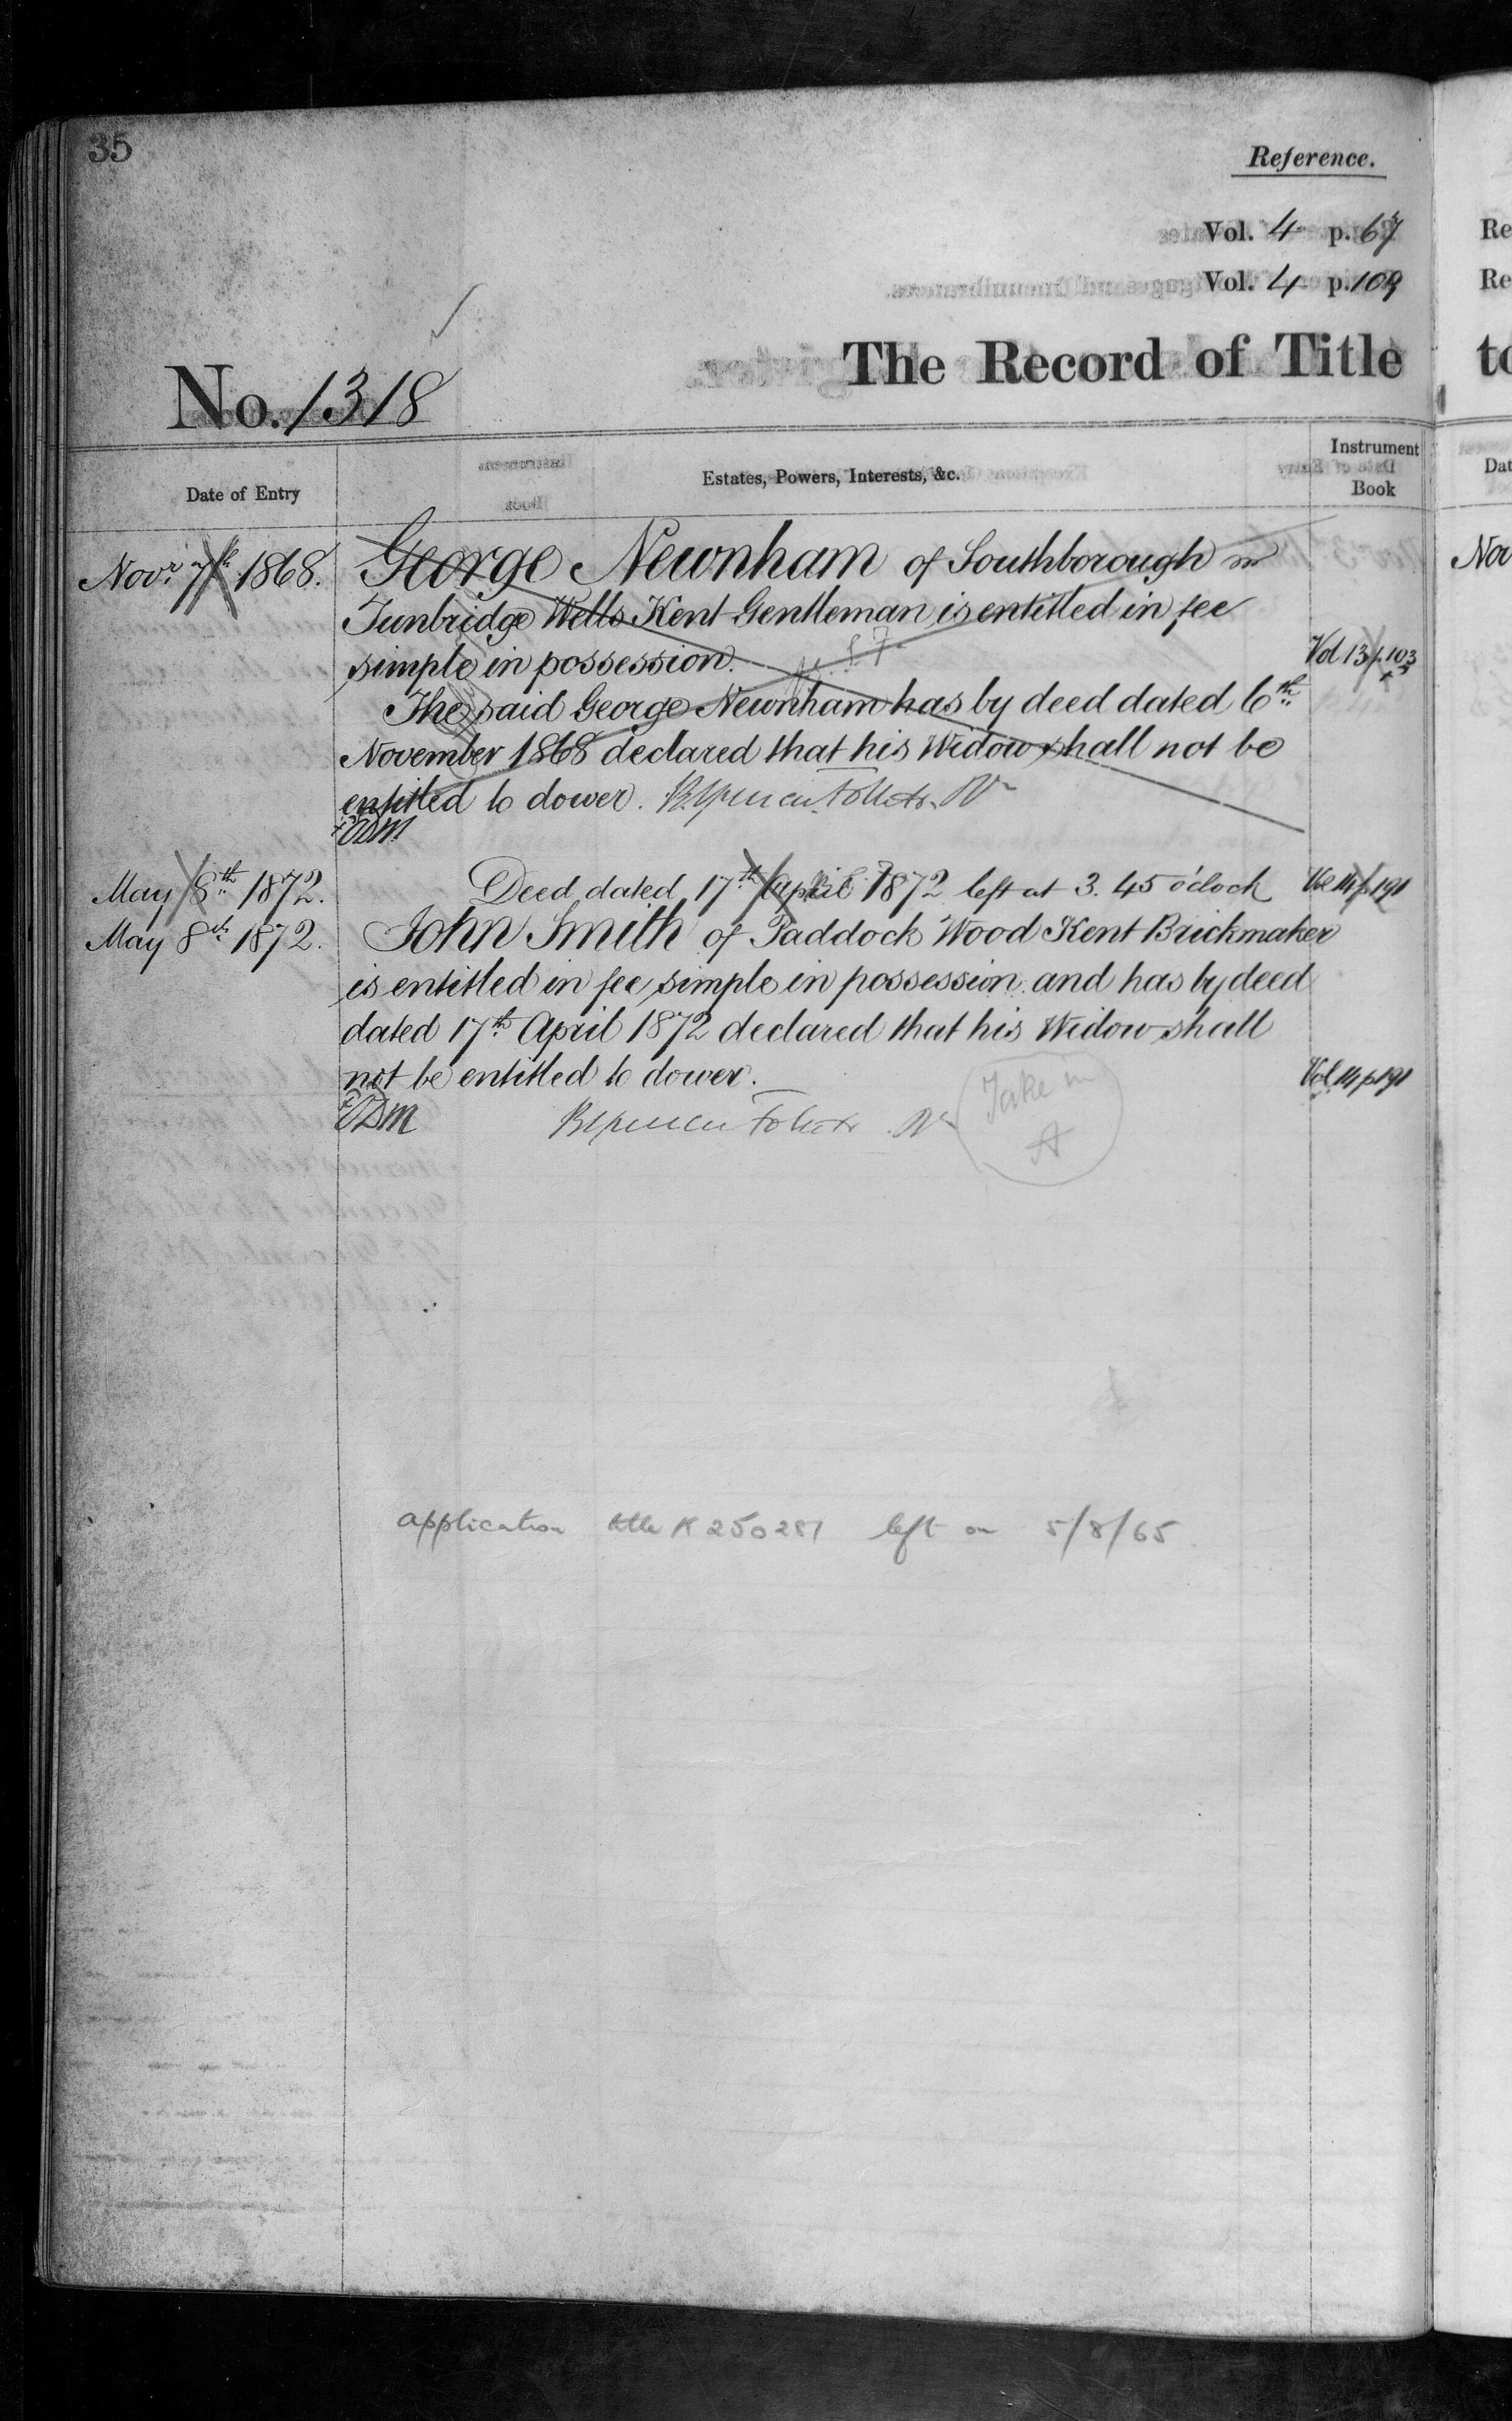 35
Reference.
Vol. 4 p. 67
Vol. 4 p. 109
The Record of Title
No. 1318
Date of Entry
Estates, Powers, Interests, &c.
Instrument Book
Novr. 7th 1868.
George Newnham of Southborough in
Tunbridge Wells Kent Gentleman is entitled in fee
simple in possession.
Vol 13 p. 103
The said George Newnham has by deed dated 6th
November 1868 declared that his Widow shall not be
entitled to dower.
May 8th 1872.
Deed dated 17th April 1872 left at 3.45 o'clock
Vol 14 p 191
May 8th 1872.
John Smith of Paddock Wood Kent Brickmaker
is entitled in fee simple in possession and has by deed
dated 17th April 1872 declared that his Widow shall
not be entitled to dower.
Vol. 14 p 191
Take in
A
application title K 250281 left on 5/8/65.
Re
Re
to
Dat
Nov